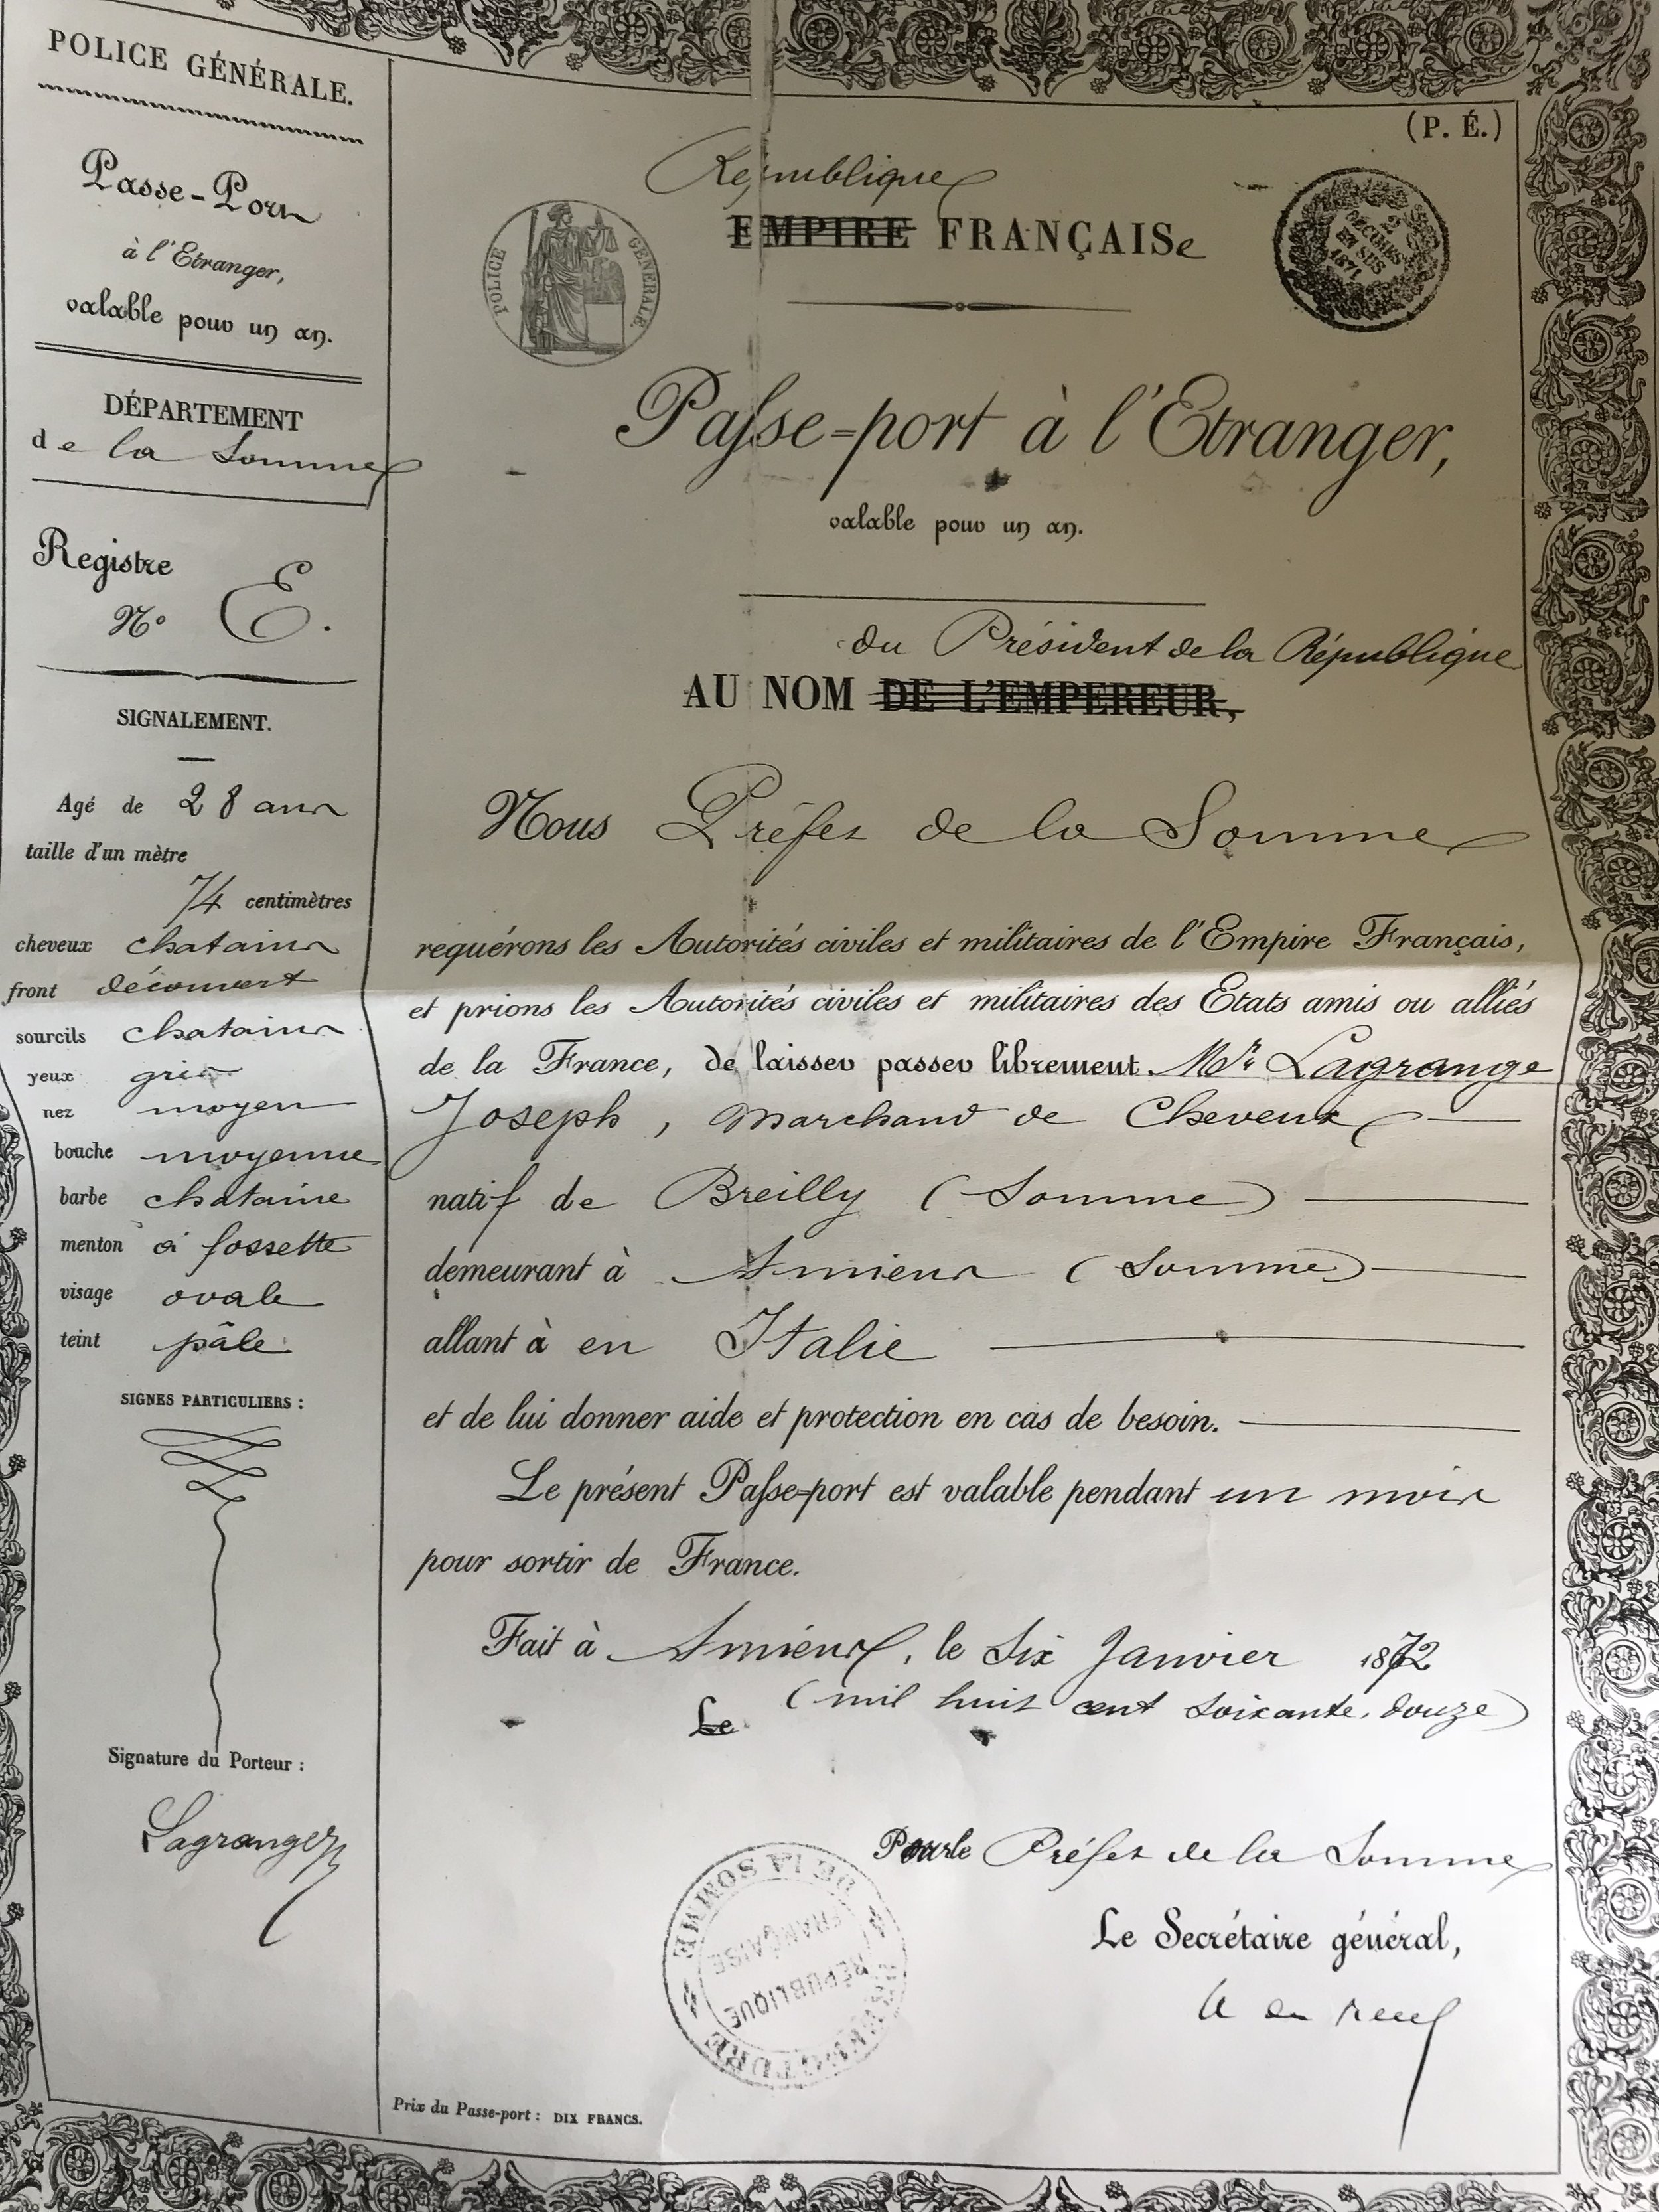 POLICE GÉNÉRALE.
Passe-Port
à l'Etranger,
valable pour un an.
DÉPARTEMENT
de la Somme
Registre
N° E.
SIGNALEMENT.
Agé de 28 ans
taille d'un mètre
74 centimètres
cheveux chatains
front découvert
sourcils chatains
yeux gris
nez moyen
bouche moyenne
barbe chataine
menton à fossette
visage ovale
teint pâle
SIGNES PARTICULIERS :
Signature du Porteur :
Lagrange
(P. É.)
République
EMPIRE FRANÇAISe
POLICE GÉNÉRALE.
2 DÉCIMES
EN SUS
1871
Passe-port à l'Etranger,
valable pour un an.
du Président de la République
AU NOM DE L'EMPEREUR,
Nous Préfet de la Somme
requérons les Autorités civiles et militaires de l'Empire Français,
et prions les Autorités civiles et militaires des Etats amis ou alliés
de la France, de laisser passer librement Mr. Lagrange
Joseph, Marchand de Cheveux
natif de Breilly (Somme)
demeurant à Amiens (Somme)
allant à en Italie
et de lui donner aide et protection en cas de besoin.
Le présent Passe-port est valable pendant un mois
pour sortir de France.
Fait à Amiens, le Six Janvier 1872
(mil huit cent soixante, douze)
Le
Pour le Préfet de la Somme
Le Secrétaire général,
PRÉFECTURE DE LA SOMME
RÉPUBLIQUE
FRANÇAISE
Prix du Passe-port : DIX FRANCS.